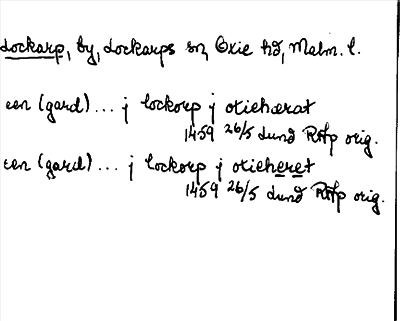 Lockarp, by, Lockarps sn, Oxie hd, Malm. l.
een (gard) ... j lockorp j oxiehærat
1459 26/5 Lund RAp orig.
een (gard) ... j lockorp j oxieheret
1459 26/5 Lund RAp orig.